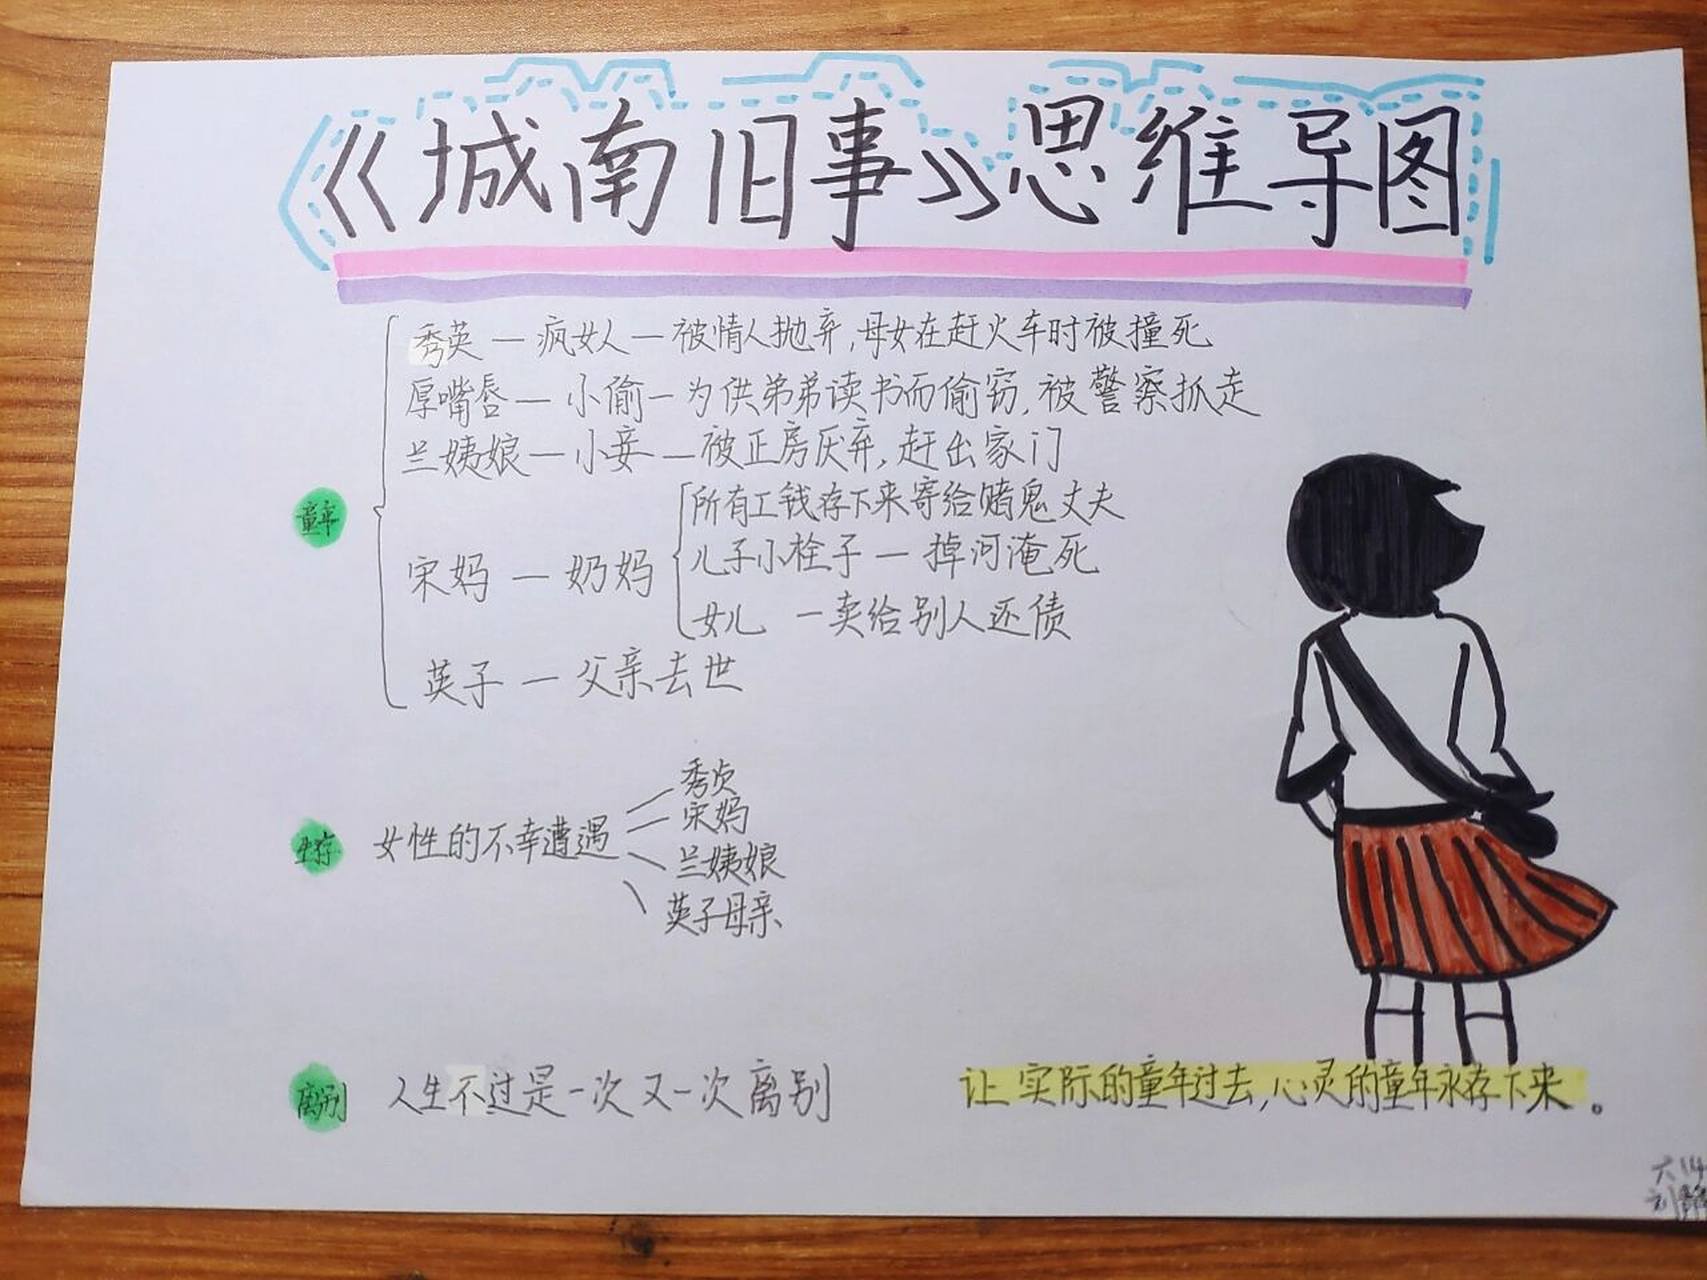 《城南旧事》思维导图
秀英—疯女人—被情人抛弃,母女在赶火车时被撞死
厚嘴唇—小偷—为供弟弟读书而偷窃,被警察抓走
兰姨娘—小妾—被正房厌弃,赶出家门
童年
宋妈—奶妈
所有工钱存下来寄给赌鬼丈夫
儿子小栓子—掉河淹死
女儿—卖给别人还债
英子—父亲去世
生存
女性的不幸遭遇
秀贞
宋妈
兰姨娘
英子母亲
离别
人生不过是一次又一次离别
让实际的童年过去,心灵的童年永存下来。
六
刘静